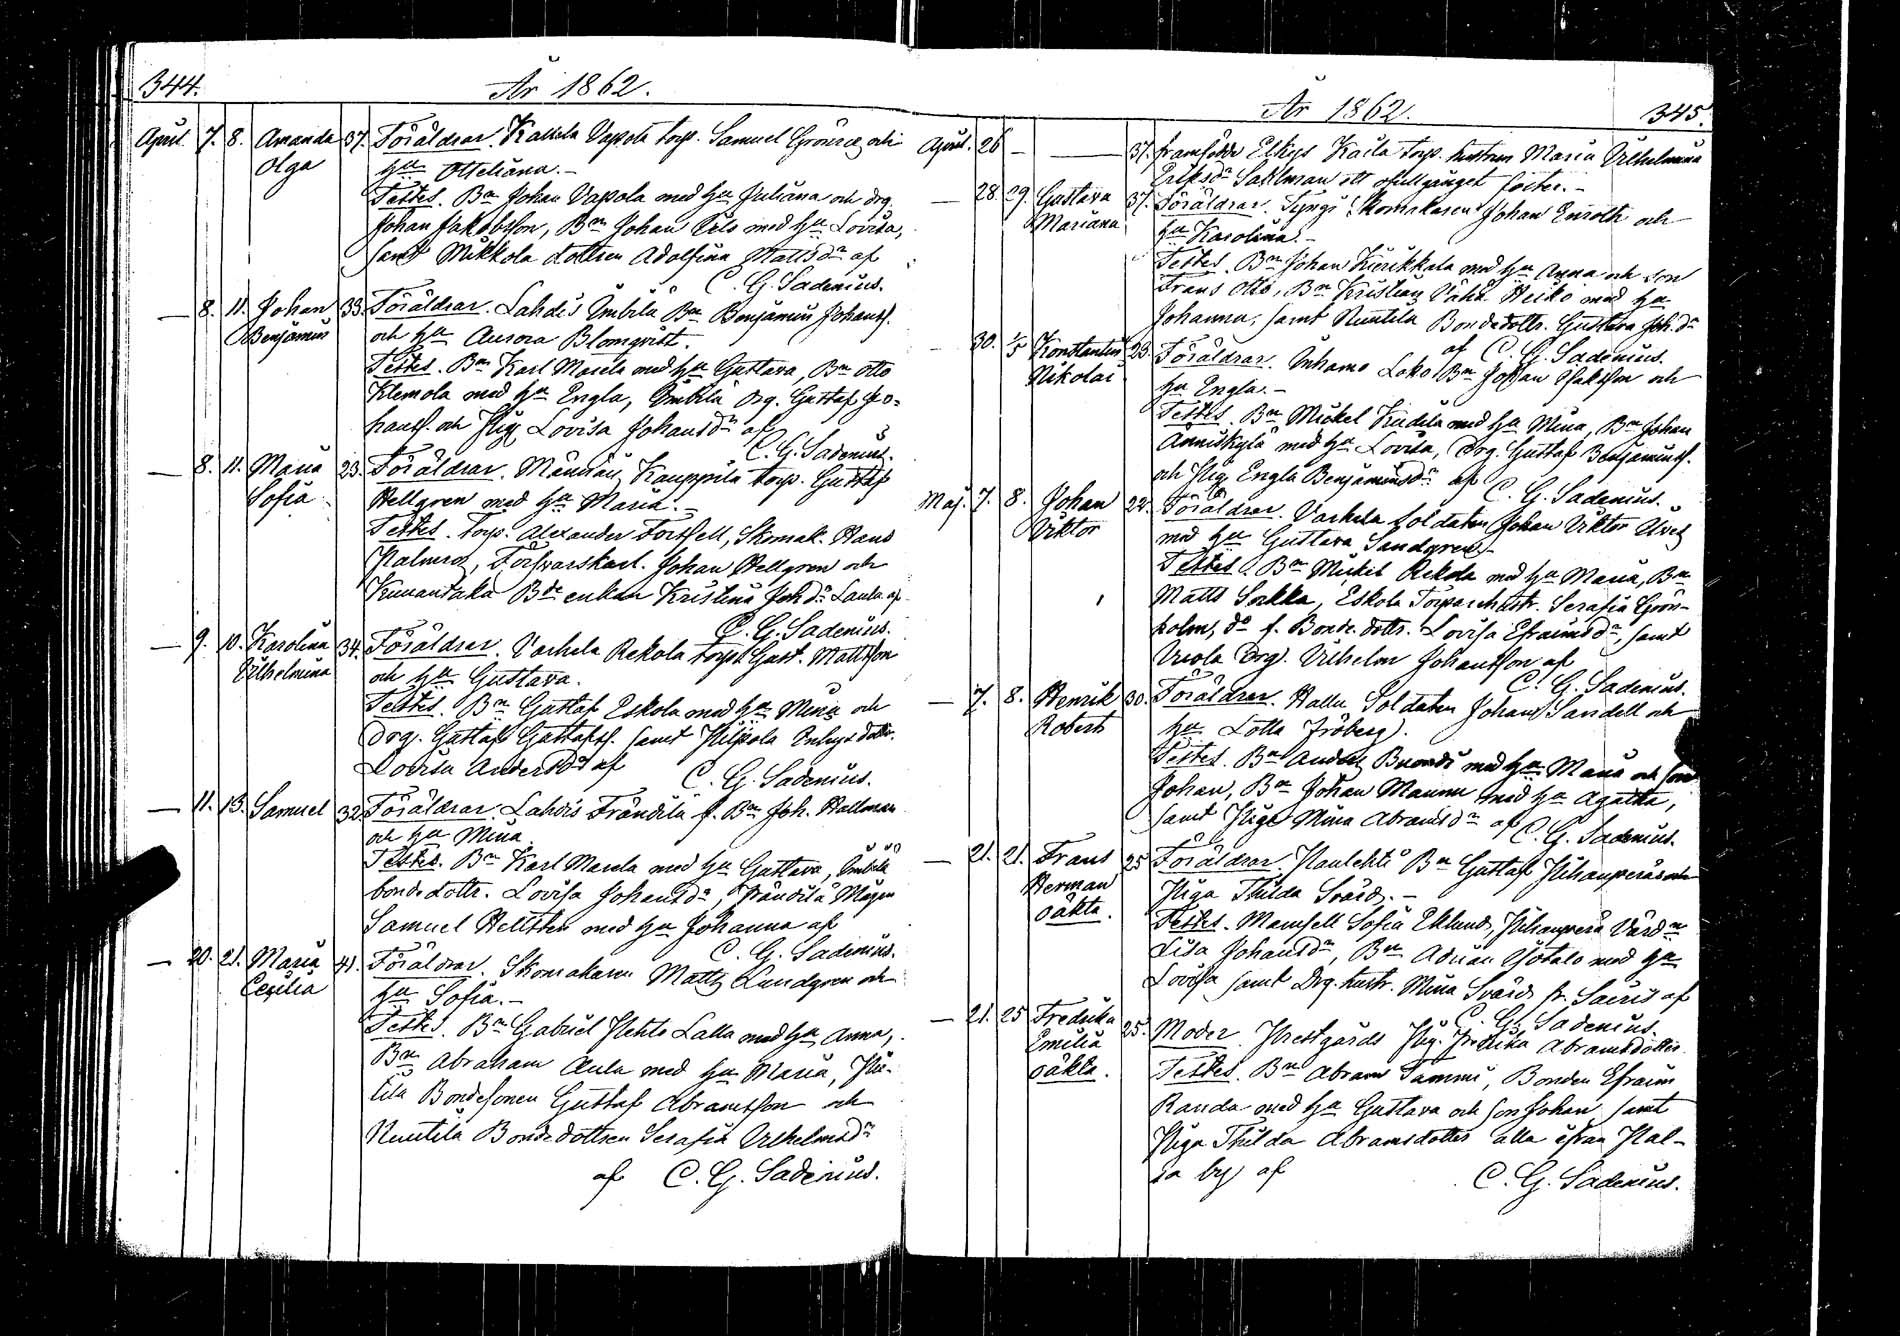 344.
År 1862.
April 7. 8. Amanda 37. Föräldrar. Kallela Vappola torp. Samuel Grönroos och
Olga hu Otteliana.-
Testes. Bn Johan Vappola med hu Juliana och drg.
Johan Jakobsson, Bn Johan Pils med hu Lovisa,
samt Mikkola dottren Adolfina Mattsdr af
C. G. Sadenius.
— 8. 11. Johan 33. Föräldrar. Lahdis Ümbilä Bn Benjamin Johanss.
Benjamin och hu Aurora Blomqvist.
Testes. Bn Karl Masela med hu Gustava, Bn Otto
Klemola med hu Engla, Ümbilä drg. Gustaf Jo-
hanss. och Pig. Lovisa Johansdr af
C. G. Sadenius.
— 8. 11. Maria 23. Föräldrar. Kauppila torp. Gustaf
Sofia Hellgren med hu Maria.-
Testes. Torp. Alexander Forssell, Skomak. Hans
Palmros, Försvarskarl. Johan Hellgren och
Bde enkan Kristina Johdr Laula af
C. G. Sadenius.
— 9. 10. Karolina 34. Föräldrar. Varhela Rekola torp. Gust. Mattsson
Vilhelmina och hu Gustava.
Testes. Bn Gustaf Eskola med hu Mina och
Drg. Gustaf Gustafss. samt Pilpola dottr.
Lovisa Andersdr af
C. G. Sadenius.
— 11. 13. Samuel 32. Föräldrar. Lahdis Frändilä f. Bn Joh. Hallman
och hu Mina.
Testes. Bn Karl Masela med hu Gustava, Ümbilä
bondedottr. Lovisa Johansdr, Frändilä Mågen
Samuel Hellsten med hu Johanna af
C. G. Sadenius.
— 20. 21. Maria 41. Föräldrar. Skomakaren Matts Lundgren och
Cecilia hu Sofia.-
Testes. Bn Gabriel Pehto Lalla med hu Anna,
Bn Abraham Aula med hu Maria,
Bondesonen Gustaf Abramsson och
Nuutila Bondedottren Serafia Vilhelmsdr
af C. G. Sadenius.
År 1862.
345.
April. 26 — — 37. framfödde Elkys Kaila torp. hustrun Maria Vilhelmina
Eriksdr Sahlman ett ofullgånget foster.-
— 28. 29. Gustava 37. Föräldrar. Syngi Skomakaren Johan Enroth och
Mariana hu Karolina.-
Testes. Bn Johan Kierikkala med hu Anna och son
Frans Otto, Bn Kristian Vähä Heiko med hu
Johanna, samt Nuutila Bondedottr. Gustava Joh.dr
af C. G. Sadenius.
— 30. 1/5 Konstantin 23. Föräldrar. Inhamo Lako Bn Johan Isaksson och
Nikolai hu Engla.-
Testes. Bn Mickel Knuutila med hu Mina, Bn Johan
Anniskylä med hu Lovisa, Drg. Gustaf Benjaminss.
och Pig. Engla Benjaminsdr af
C. G. Sadenius.
Maj. 7. 8. Johan 22. Föräldrar. Varhela Soldaten Johan Viktor
Viktor med hu Gustava Sandgren.-
Testes. Bn Mickel Rekola med hu Maria, Bn
Matts Sorkka, Eskola Torparehustr. Serafia Grön-
holm, do f. Bonde dottr. Lovisa Efraimsdr samt
Uvola Drg. Vilhelm Johansson af
C. G. Sadenius.
— 7. 8. Henrik 30. Föräldrar. Hallu Soldaten Johan Sandell och
Robert hu Lotta Fröberg.
Testes. Bn Anders Buondi med hu Maria och son
Johan, Bn Johan Maunu med hu Agatha,
samt Piga Mina Abramsdr af
C. G. Sadenius.
— 21. 21. Frans 25. Föräldrar. Haulehti Bn Gustaf Pihanperä och
Herman Piga Thilda Svärd.-
oäkta. Testes. Mamsell Sofia Eklund, Pihanperä Värdn
Lisa Johansdr, Bn Adrian Ojotalo med hu
Lovisa samt Drg. hustr. Mina Svärd fr. Säiris af
C. G. Sadenius.
— 21. 25 Fredrika 25. Moder. Prestgårds Pig. Fredrika Abramsdotter.
Emilia Testes. Bn Abram Tammi, Bonden Efraim
oäkta. Randa med hu Gustava och son Johan samt
Piga Thilda Abramsdotter alla ifrån Hal-
la by af C. G. Sadenius.